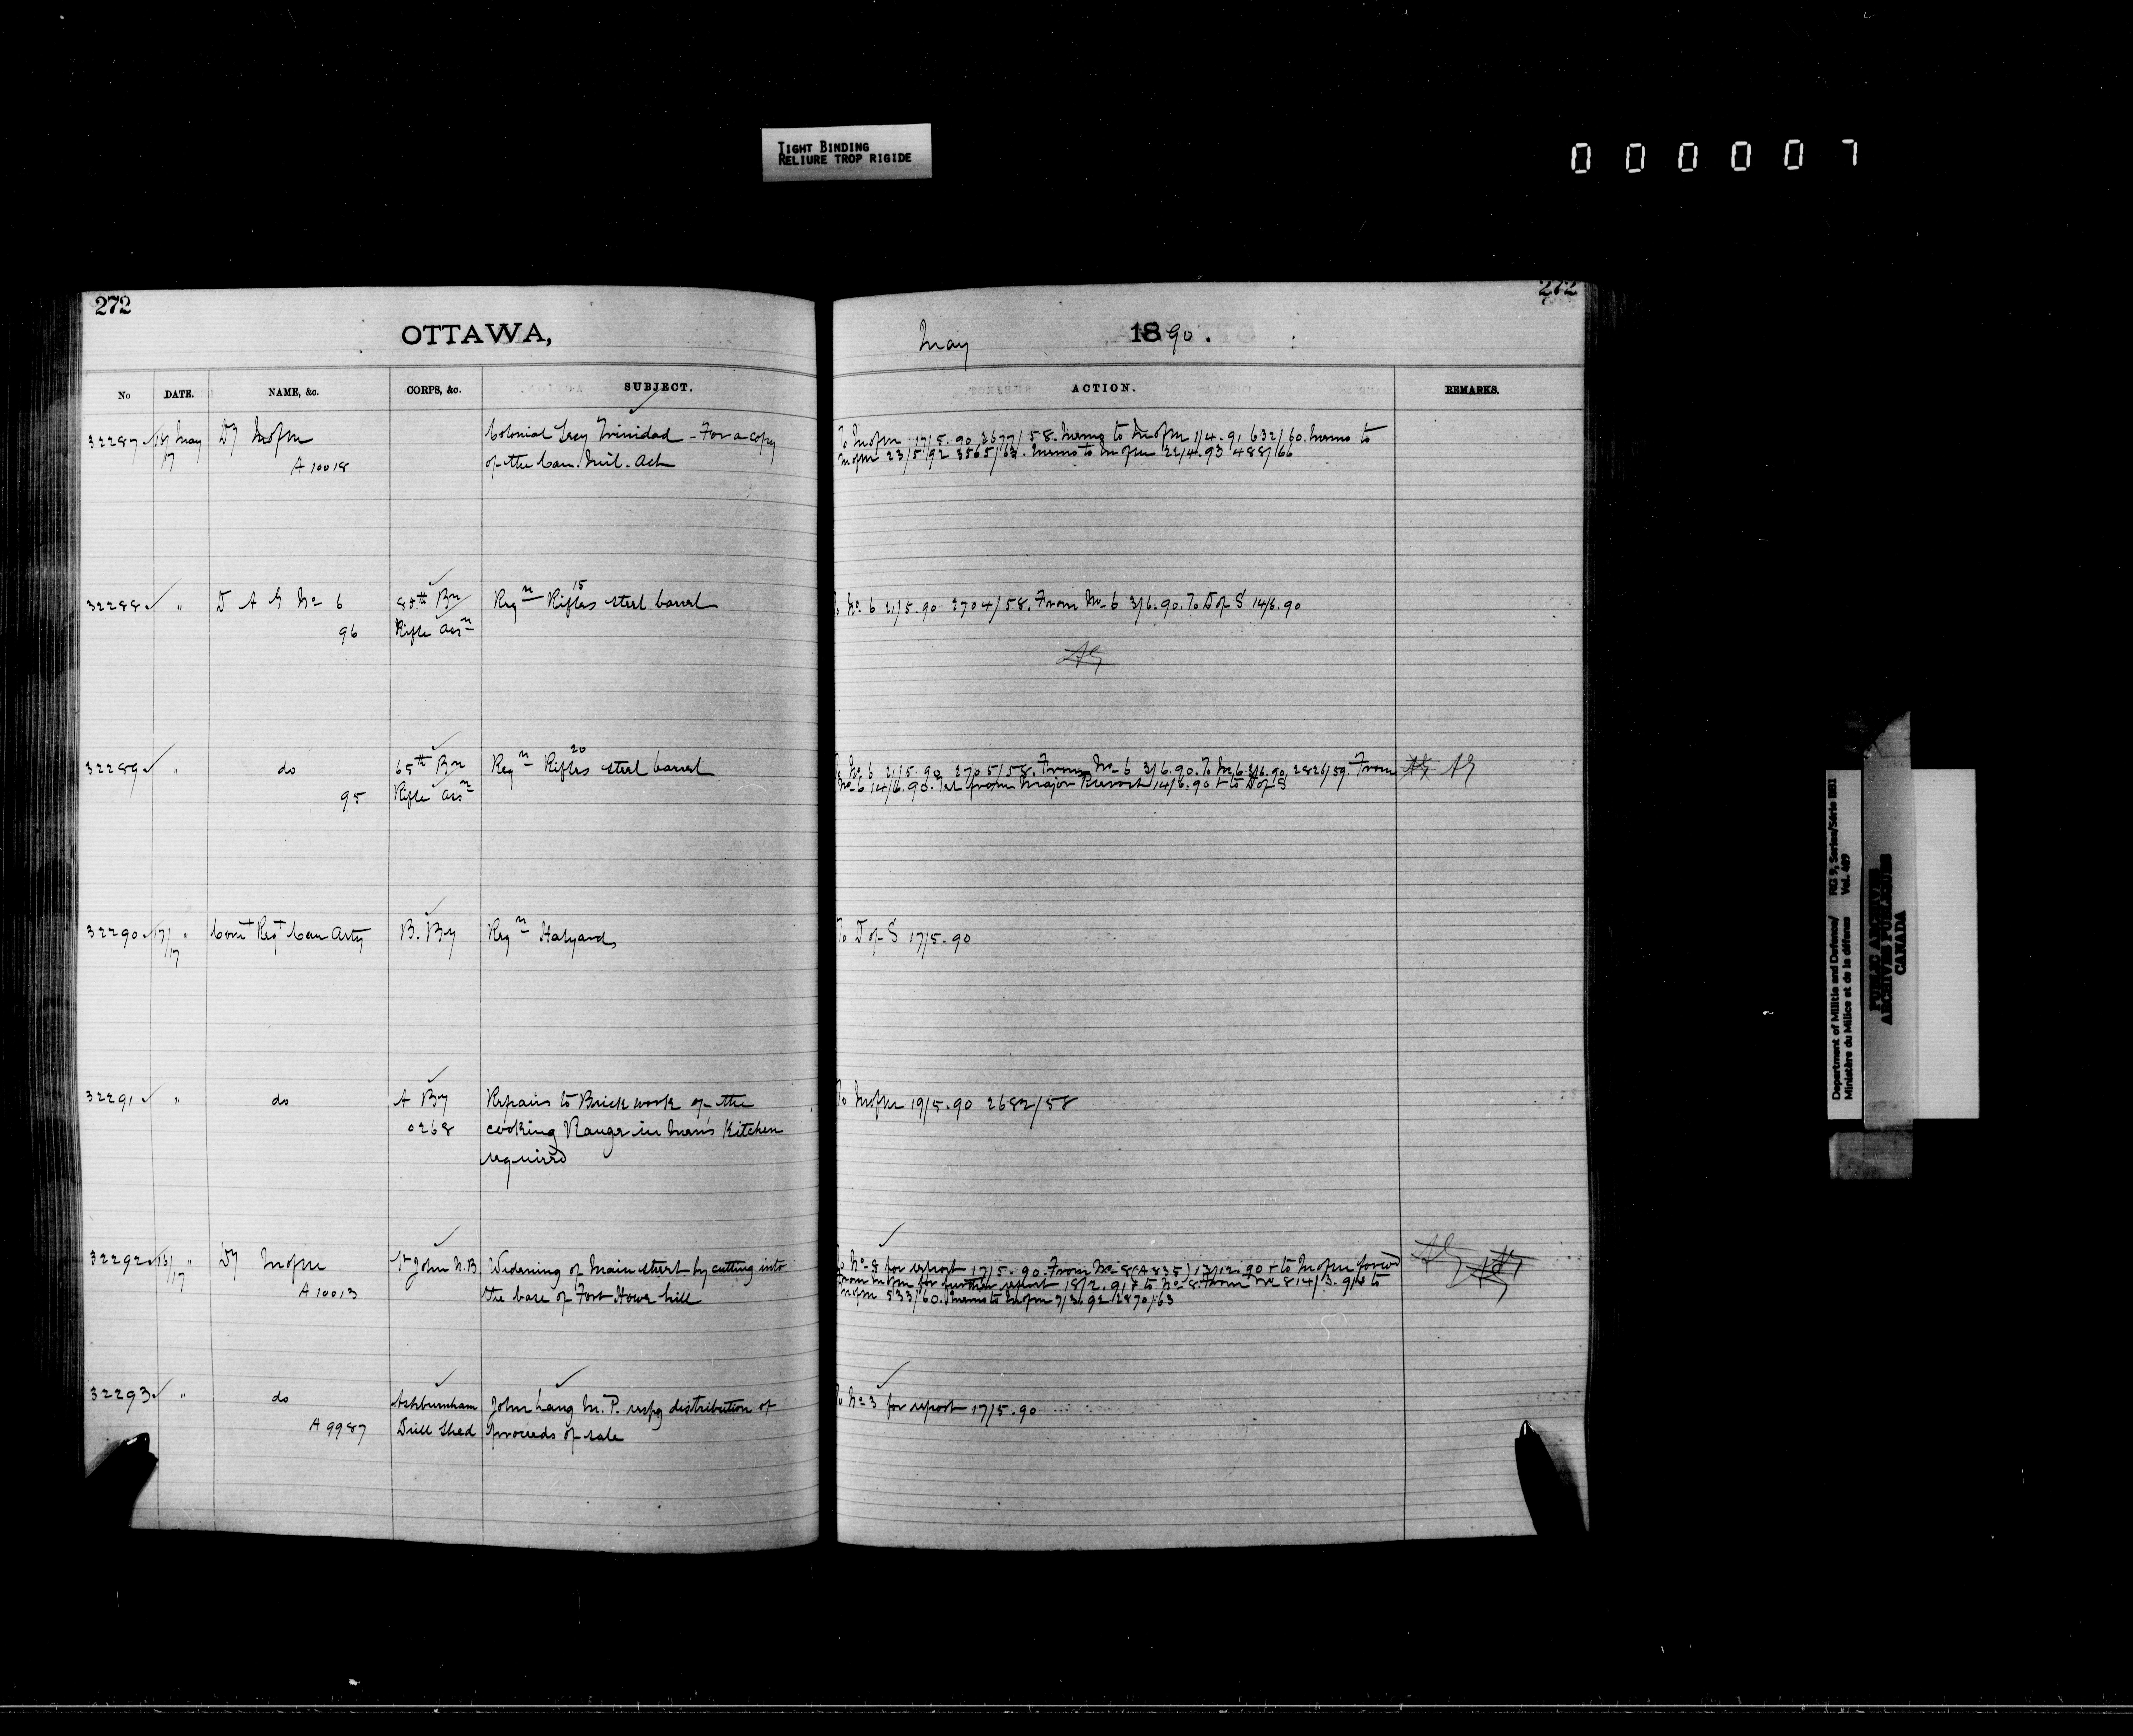 TIGHT BINDING
RELIURE TROP RIGIDE
000007
272
272
OTTAWA,
May 1890.
No DATE. NAME, &c. CORPS, &c. SUBJECT. ACTION. REMARKS.
32287 16 May Dy M of M Colonial Secy Trinidad - For a copy
17 A 10018 of the Can. Mil. Act
To M of M 17/5.90 2677/58. Memo to M of M 1/4.91 632/60. Memo to
M of M 23/5/92 3565/63. Memo to M of M 22/4.93 488/66
32288 " D A G No 6 85th Bn Reqn 15 Rifles steel barrel
96 Rifle Assn
To No 6 21/5.90 2704/58. From No 6 3/6.90. To D of S 14/6.90
AG
32289 " do 65th Bn Reqn 20 Rifles steel barrel
95 Rifle Assn
To No 6 21/5.90 2705/58. From No 6 3/6.90. To No 6 3/6.90 2826/59. From AG AG
No 6 14/6.90. from Major 14/6.90 + to D of S
32290 17/17 " Comt Regt Can Arty B. By Reqn Halyards
To D of S 17/5.90
32291 " do A By Repairs to Brick work of the
0268 cooking Range in men's Kitchen
required
To M of M 19/5.90 2682/58
32292 13/17 " Dy M of M St John N.B. Widening of Main street by cutting into
A 10013 the base of Fort Howe hill
To No 8 for report 17/5.90. From No 8 (A 835) 17/12.90 + to M of M forwd
From M of M for further report 18/2.91 + to No 8. From No 8 14/3.91 + to
M of M 533/60. Memo to M of M 7/3.92 2870/63
32293 " do Ashburnham John Lang M.P. respg distribution of
A 9987 Drill Shed proceeds of sale
To No 3 for report 17/5.90
Department of Militia and Defence/ RG 9, Series/Série IIB1
Ministère du Milice et de la défense Vol. 489
PUBLIC ARCHIVES
ARCHIVES PUBLIQUES
CANADA